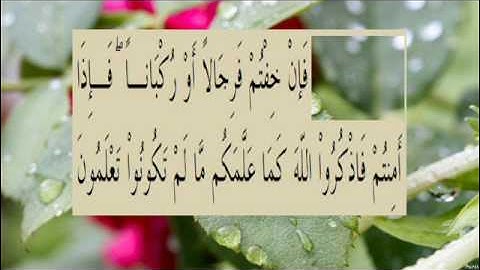 فَإِنْ خِفْتُمْ فَرِجَالاً أَوْ رُكْبَانًا ۖ فَإِذَا
أَمِنتُمْ فَاذْكُرُواْ اللّهَ كَمَا عَلَّمَكُم مَّا لَمْ تَكُونُواْ تَعْلَمُونَ